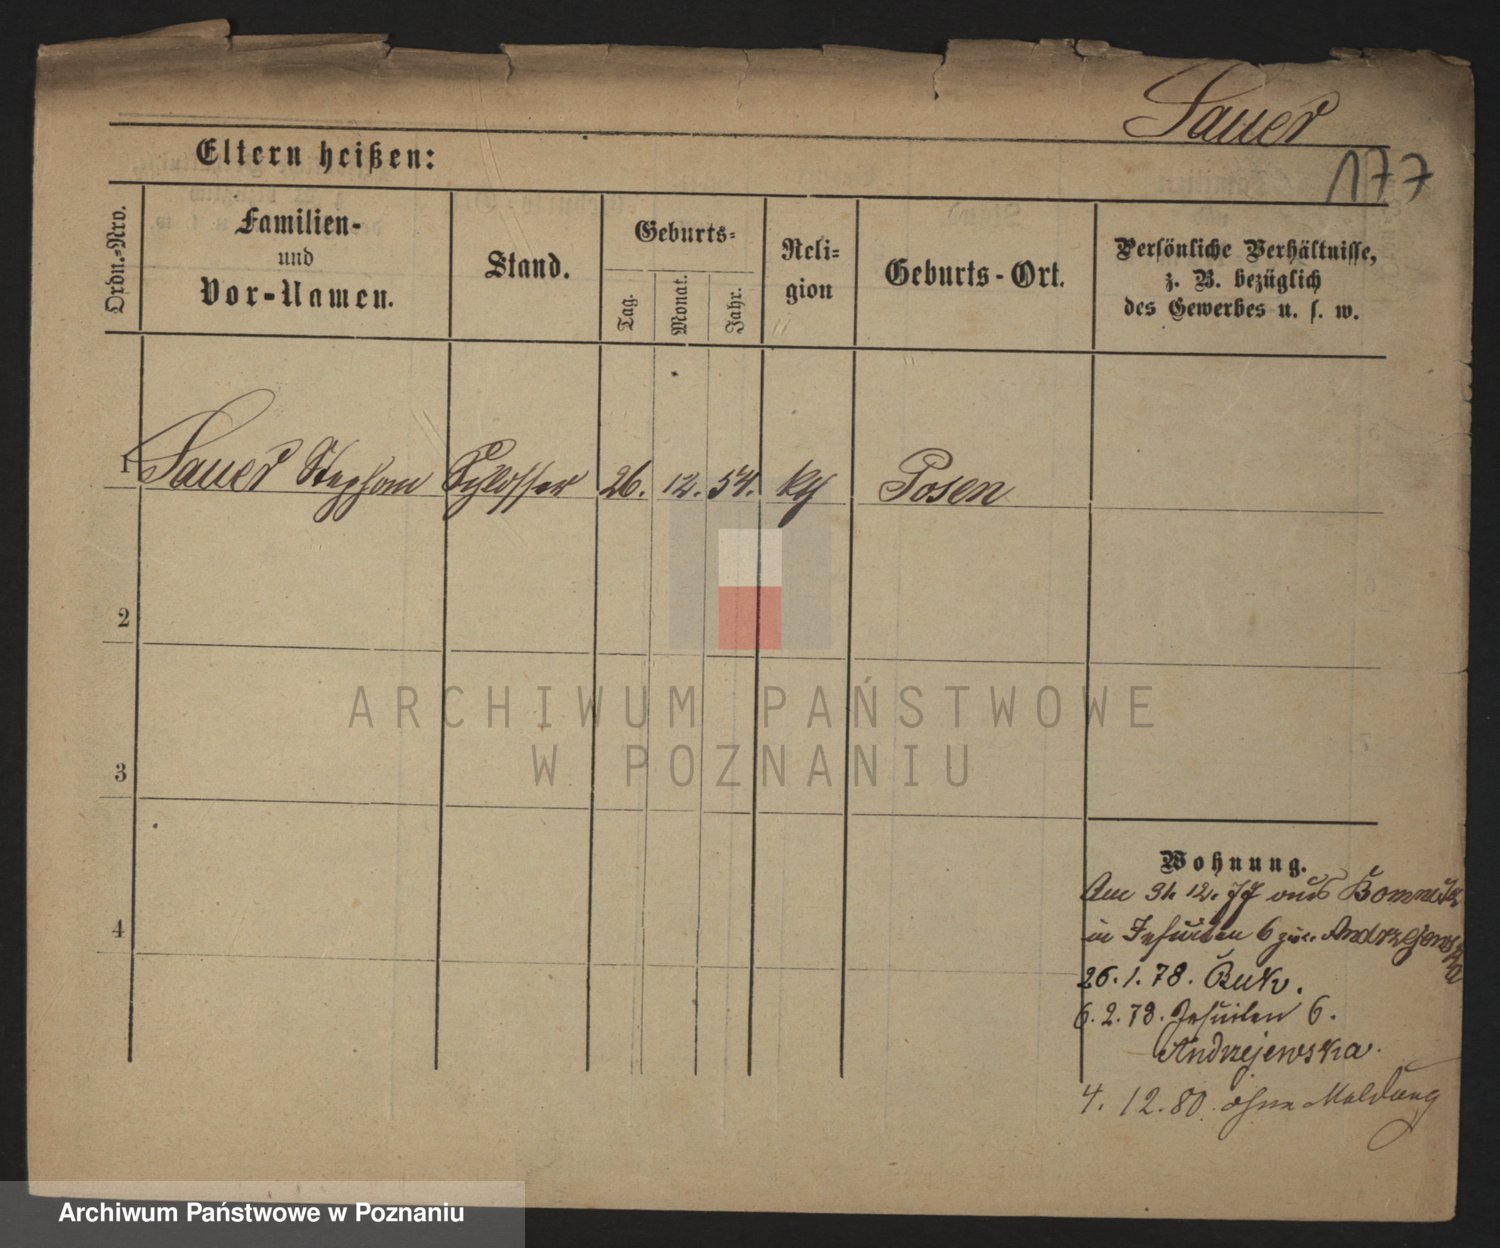 Sauer
177
Eltern heißen:
Ordn.-Nro.
Familien-
und
Vor-Namen.
Stand.
Geburts-
Tag.
Monat.
Jahr.
Reli-
gion
Geburts-Ort.
Persönliche Verhältnisse,
z. B. bezüglich
des Gewerbes u. s. w.
1 Sauer Stephan Schlosser 26. 12. 54. kth Posen
2
3
4
Wohnung.
Am 31. 12. 77 aus
in Jesuiten 6 Andrzejewska
26. 1. 78. Buk.
6. 2. 78. Jesuiten 6.
Andrzejewska.
4. 12. 80. ohne Meldung
ARCHIWUM PAŃSTWOWE
W POZNANIU
Archiwum Państwowe w Poznaniu